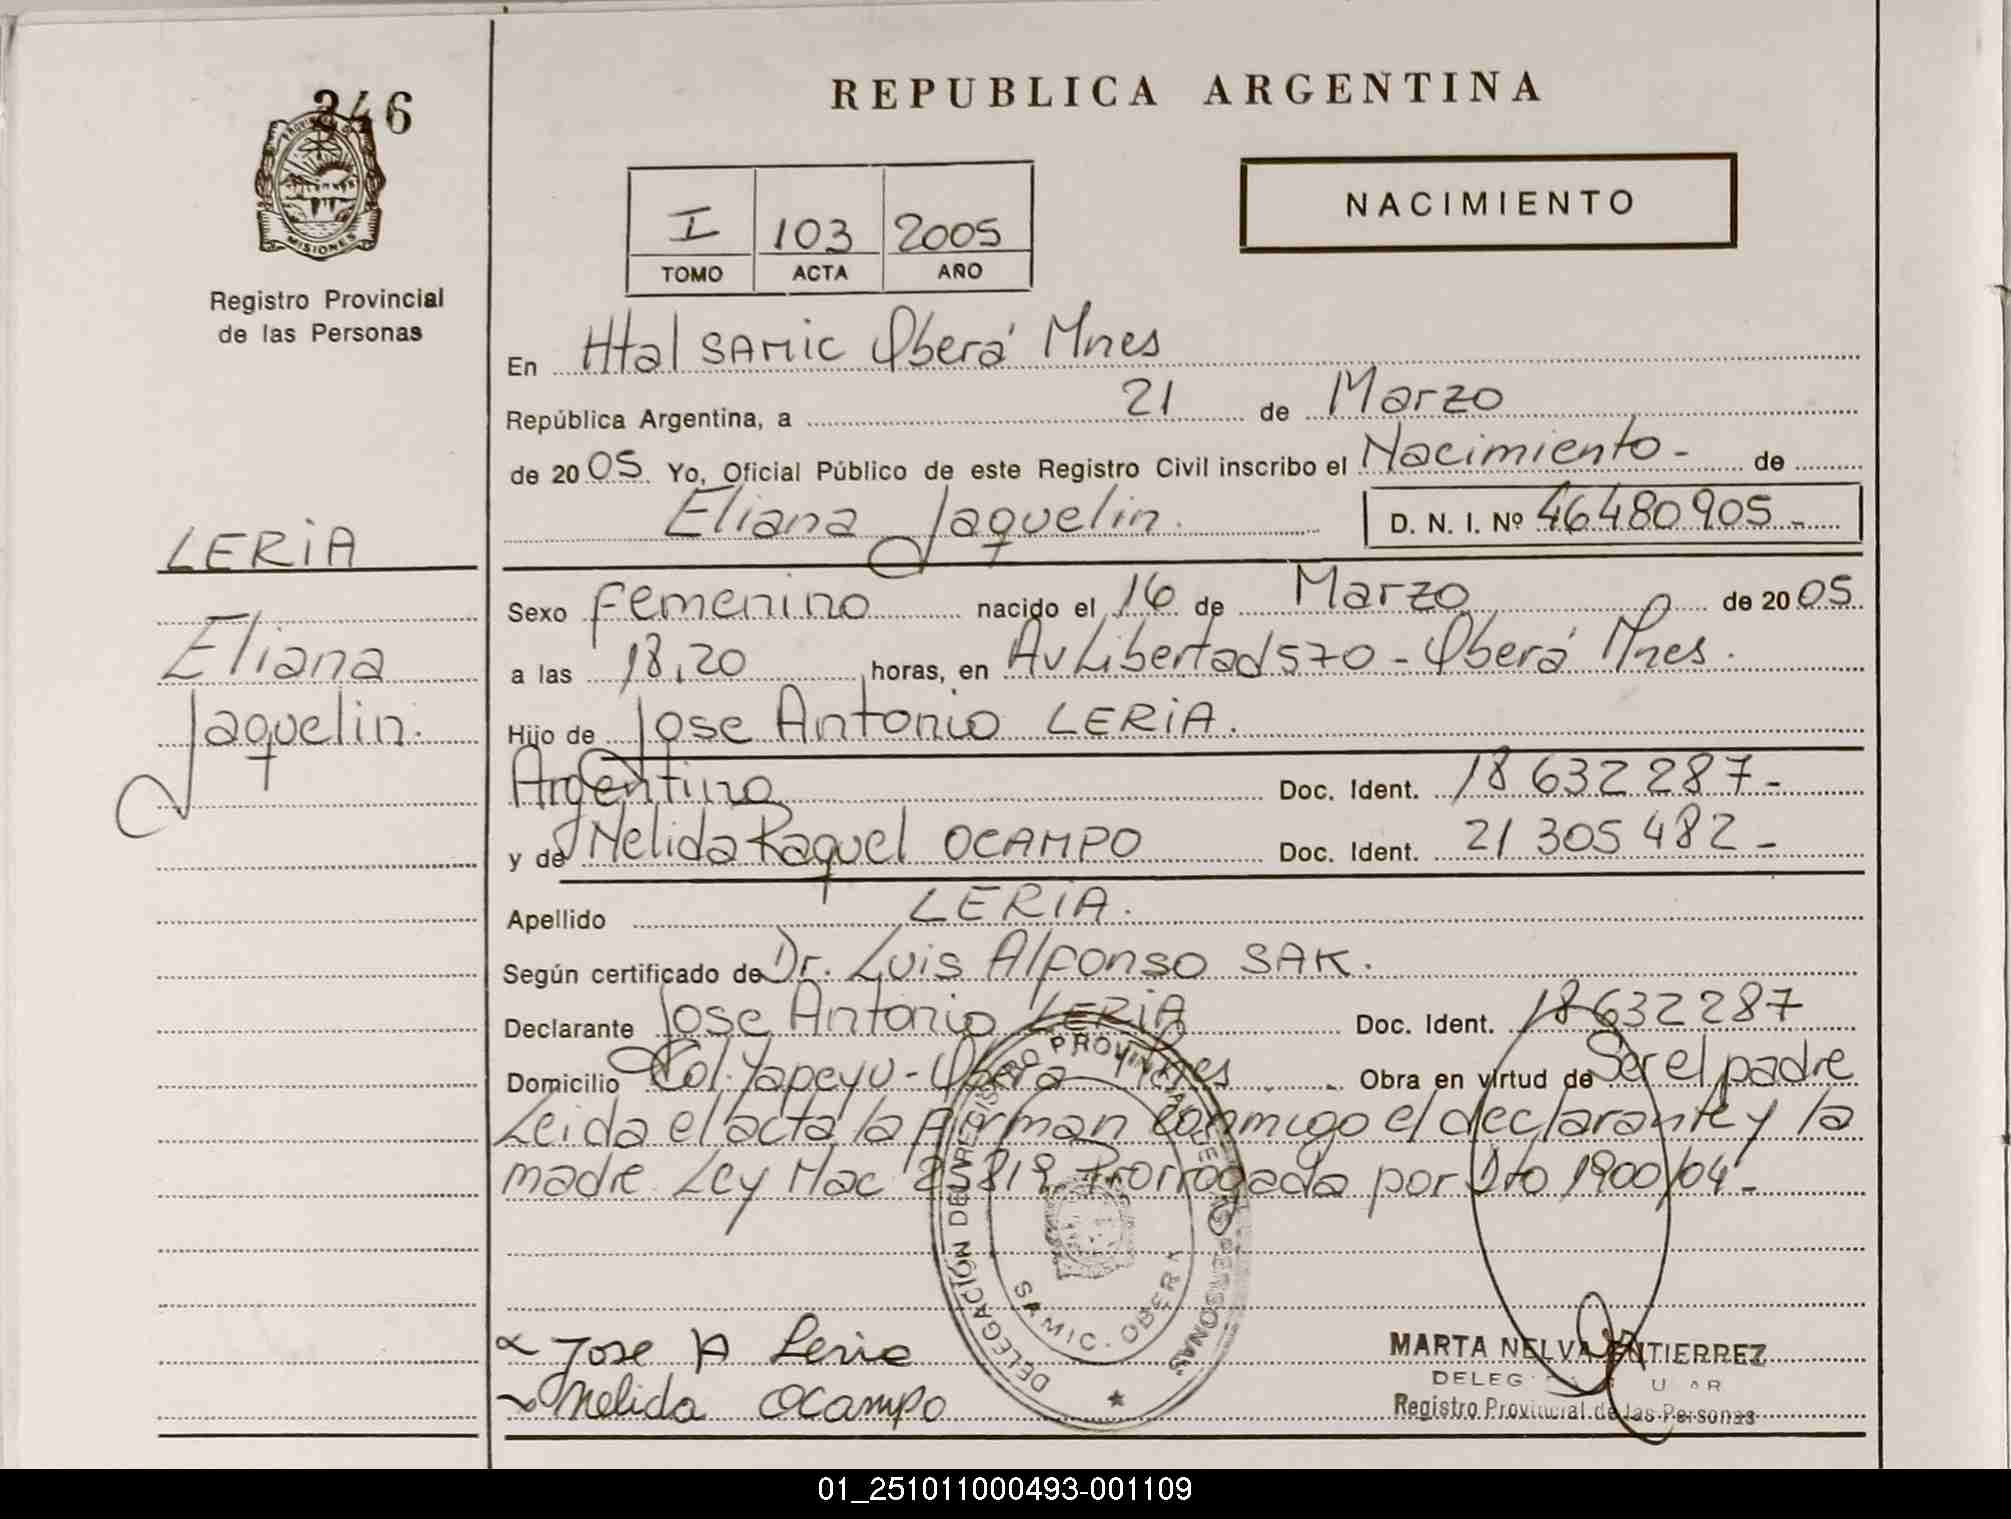 346
PROVINCIA DE
MISIONES
Registro Provincial
de las Personas
LERIA
Eliana
Jaquelin.
REPUBLICA ARGENTINA
NACIMIENTO
I 103 2005
TOMO ACTA AÑO
En Htal SAMIC Oberá Mnes
República Argentina, a 21 de Marzo
de 2005 Yo, Oficial Público de este Registro Civil inscribo el Nacimiento - de
Eliana Jaquelin. D. N. I. Nº 46480905 -
Sexo Femenino nacido el 16 de Marzo de 2005
a las 18,20 horas, en Av Libertad 570 - Oberá Mnes.
Hijo de Jose Antonio LERIA.
Argentino Doc. Ident. 18 632 287 -
y de Nelida Raquel OCAMPO Doc. Ident. 21 305 482 -
Apellido LERIA.
Según certificado de Dr. Luis Alfonso SAK.
Declarante Jose Antonio LERIA Doc. Ident. 18632287
Domicilio Col. Yapeyu - Oberá Mnes Obra en virtud de Ser el padre
Leida el acta la firman conmigo el declarante y la
madre Ley Nac 25819 Prorrogada por Dto 1900/04 -
DELEGACIÓN DEL REGISTRO PROVINCIAL DE LAS PERSONAS
SAMIC. OBERA
Jose A Leria
Melida Ocampo
MARTA NELVA GUTIERREZ
Registro Provincial de las Personas
01_251011000493-001109